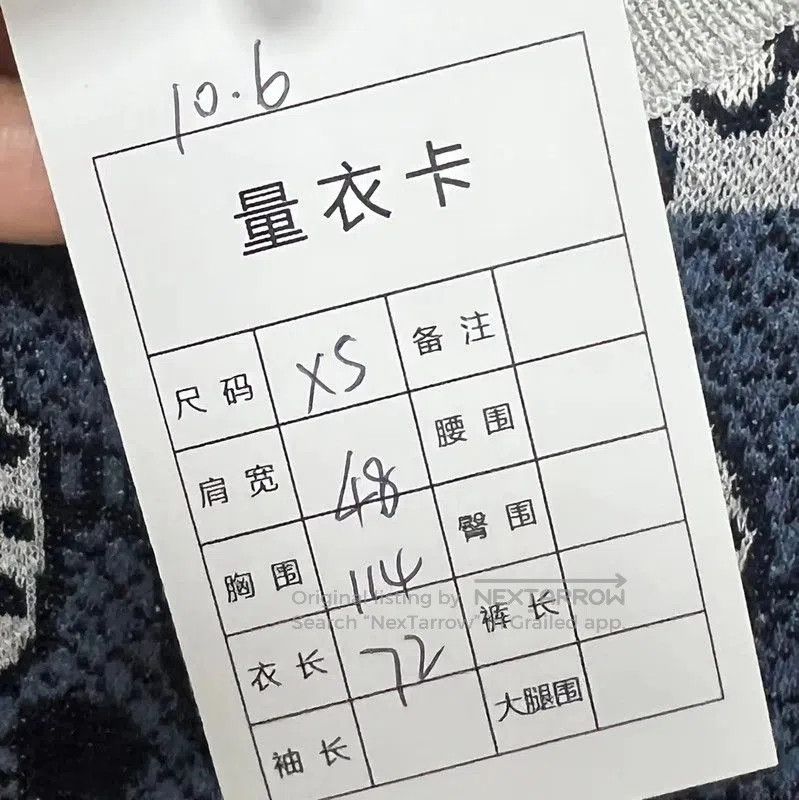 10.6
量衣卡
尺码 XS 备注
肩宽 48 腰围
胸围 114 臀围
衣长 72 裤长
袖长 大腿围
Original listing by NEXTARROW
Search "NexTarrow" Grailed app